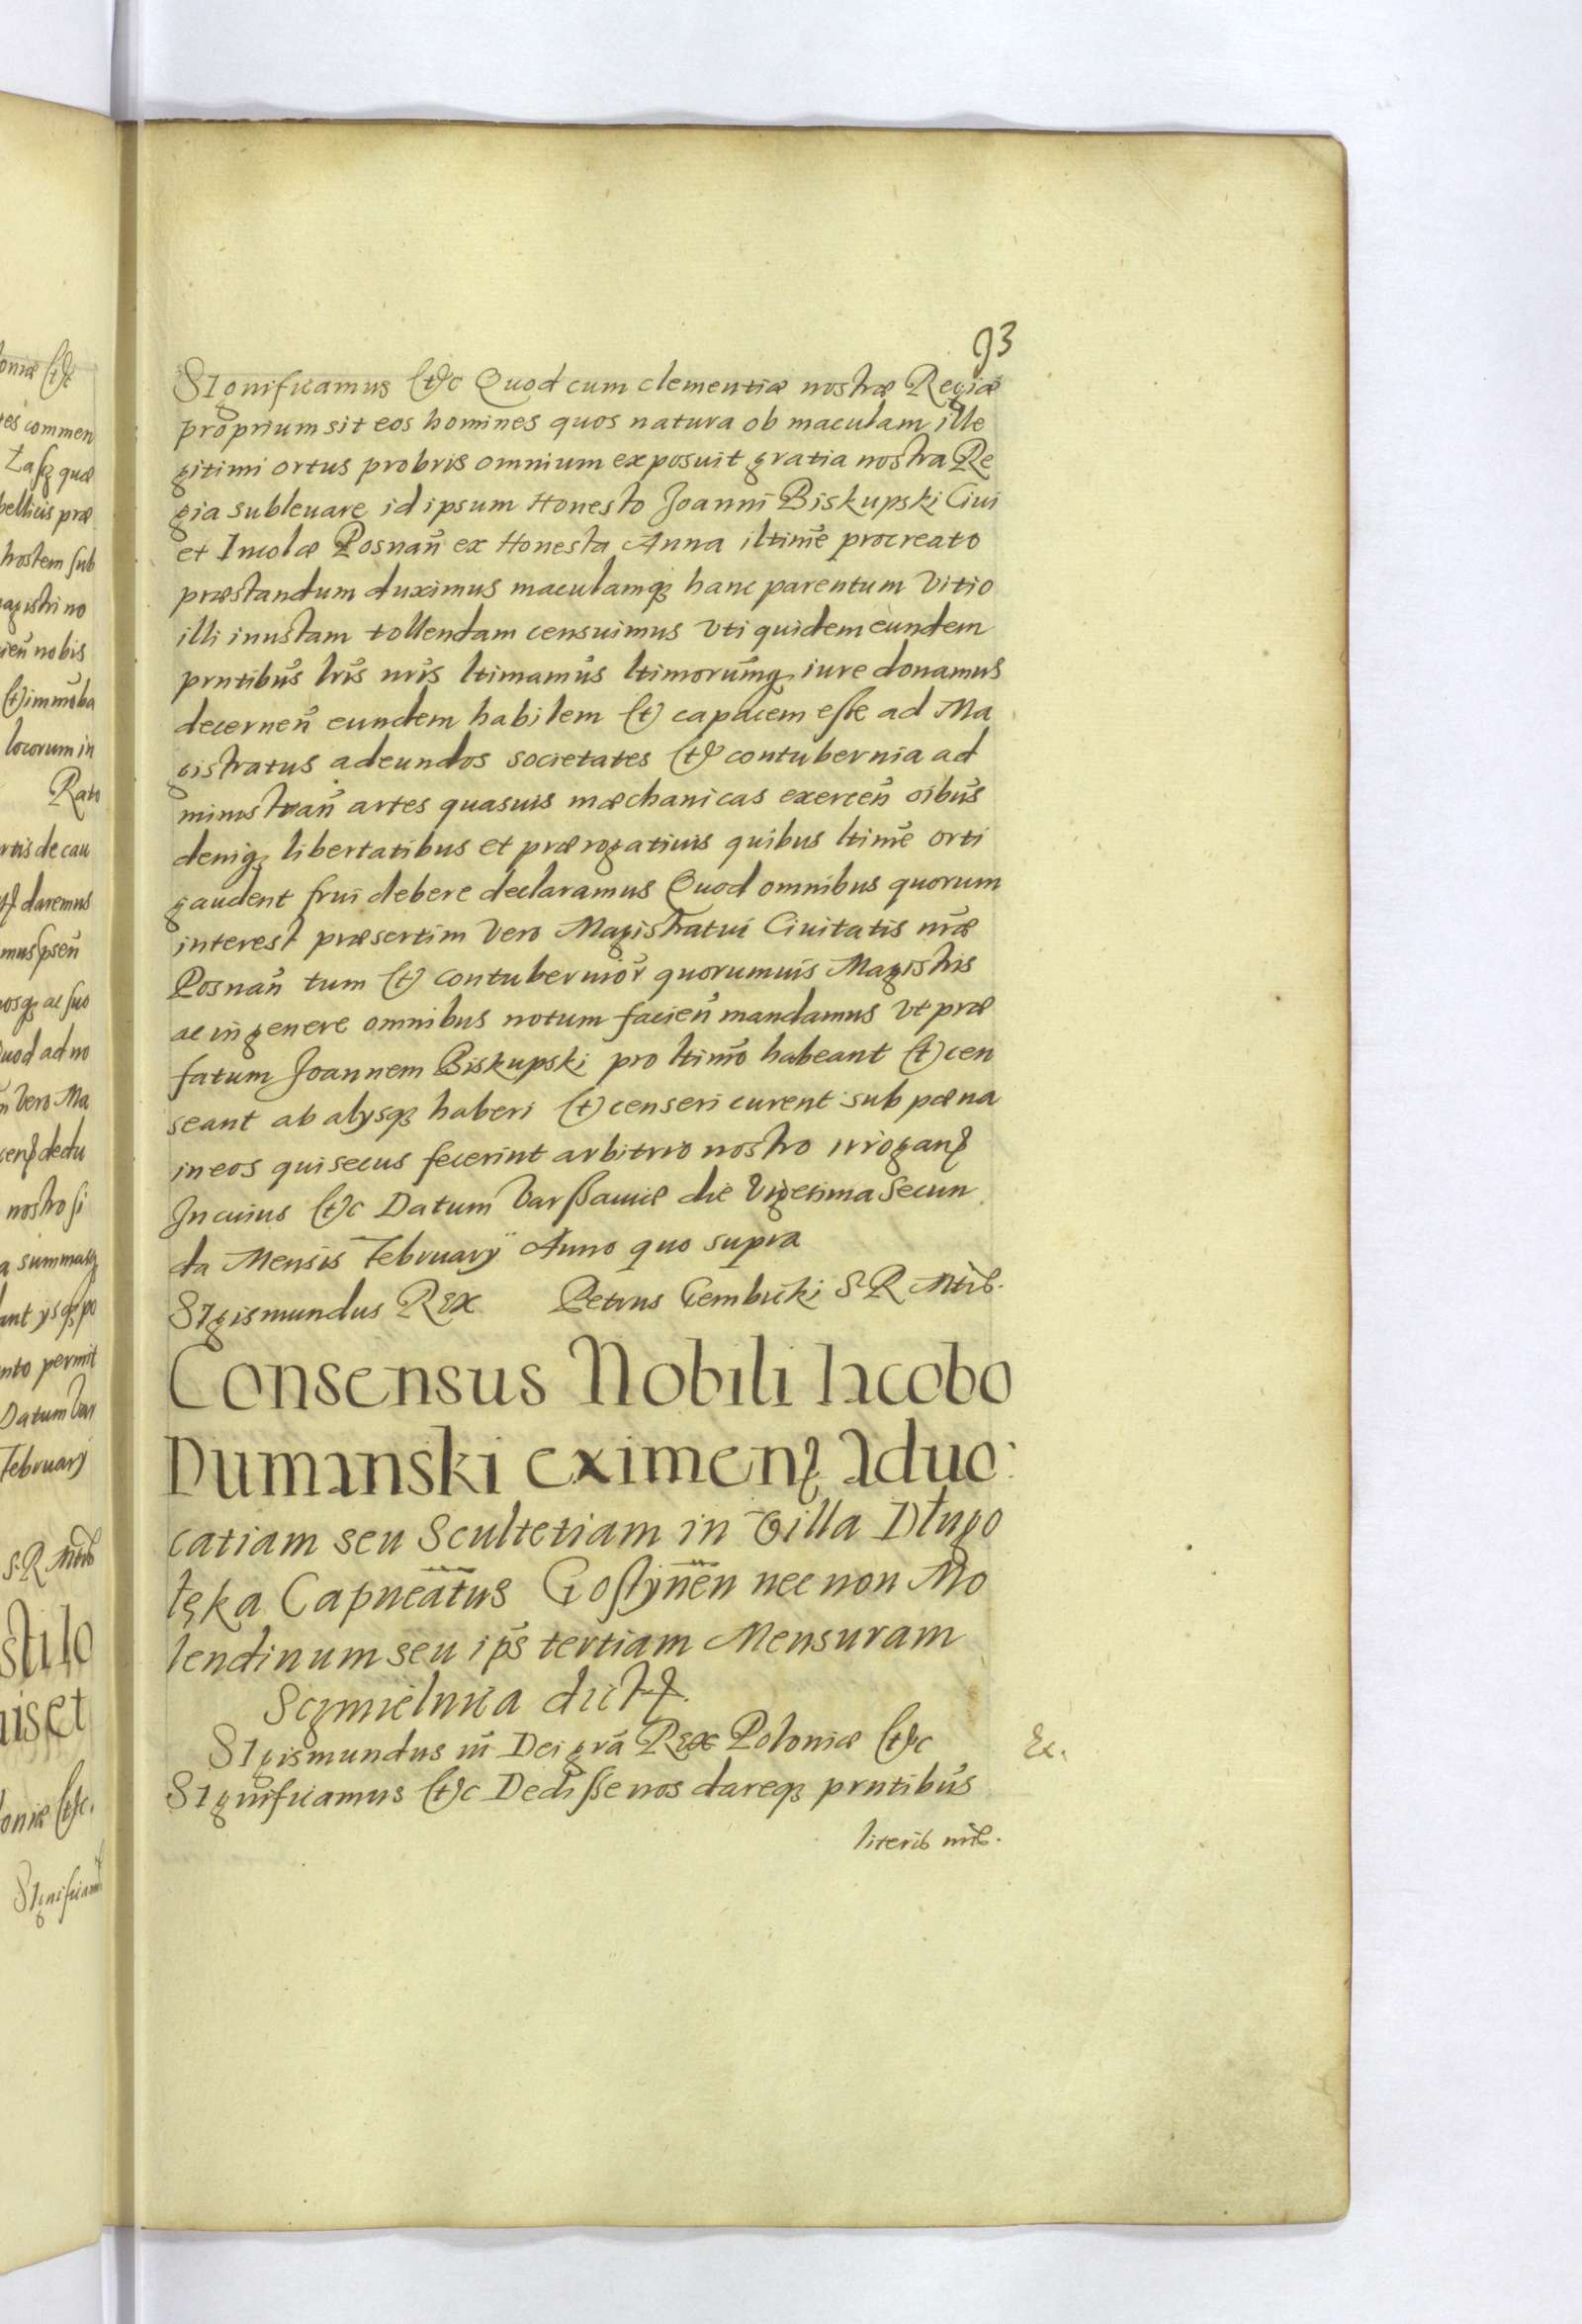 93
SIgnificamus (et)c Quod cum clementiæ nostræ Regiæ
proprium sit eos homines quos natura ob maculam ille
gitimi ortus probris omnium exposuit gratia nostra Re
gia subleuare id ipsum Honesto Joanni Biskupski Ciui
et Incolæ Posnan̄ ex Honesta Anna iltim̄e procreato
præstandum duximus maculamq₃ hanc parentum vitio
illi inustam tollendam censuimus vti quidem eundem
prntibūs lrīs nrīs ltimamūs ltimorūmq₃ iure donamus
decernen̄ eundem habilem (et) capacem esse ad Ma
gistratus adeundos societates (et) contubernia ad
ministran̄ artes quasuis mæchanicas exercen̄ oībus
deniq₃ libertatibus et prærogatiuis quibus ltim̄e orti
gaudent frui debere declaramus Quod omnibus quorum
interest præsertim vero Magistratui Ciuitatis nr̄æ
Posnan̄ tum (et) contubernior̄ quorumuis Magistris
ac in genere omnibus notum facien̄ mandamus vt præ
fatum Joannem Biskupski pro ltim̄o habeant (et) cen
seant ab alysq₃ haberi (et) censeri curent sub pæna
in eos qui secus fecerint arbitrio nostro irroganꝭ
In cuius (et)c Datum Varssauiæ die Vigesima Secun
da Mensis February Anno quo supra
SIgismundus REX Petrus Gembicki S R Mtis.
Consensus Nobili Iacobo
Dumanski eximenꝭ aduo:
catiam seu Scultetiam in Villa Długo
łęka Capneat̄us Gostynēn nec non Mo
lendinum seu ip̄s tertiam Mensuram
Sczmielnica dictꝭ.
SIgismundus iii Dei grā REX Poloniæ (et)c
Ex.
SIgnificamus (et)c Dedisse nos dareq₃ prntibūs
literis nr̄is.